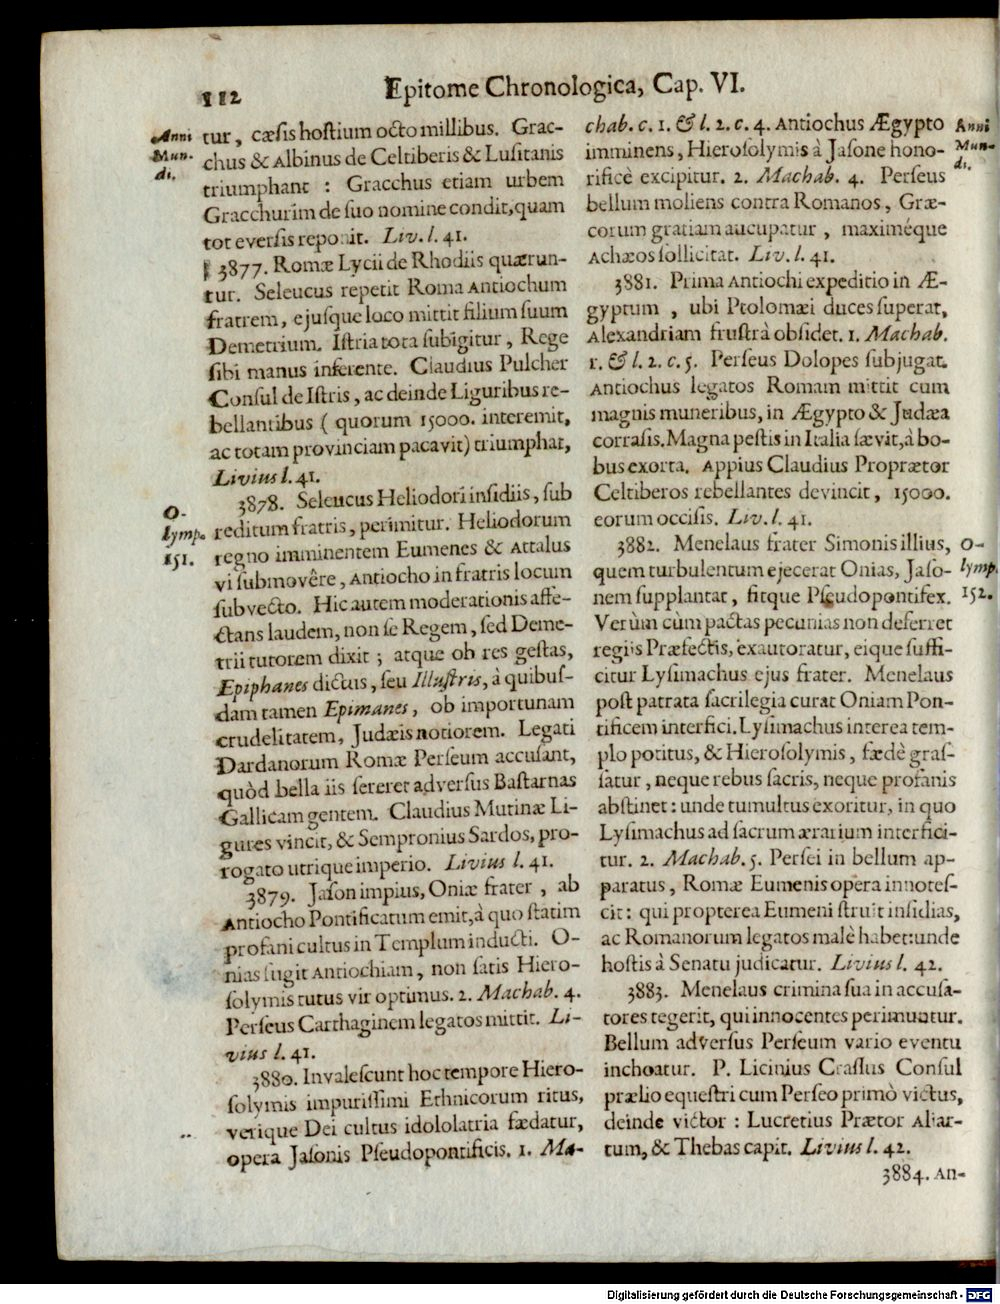 112
Epitome Chronologica, Cap. VI.
Anni
Mun-
di.
tur, cæsis hostium octo millibus. Grac-
chus & Albinus de Celtiberis & Lusitanis
triumphant : Gracchus etiam urbem
Gracchurim de suo nomine condit, quam
tot eversis reponit. Liv. l. 41.
3877. Romæ Lycii de Rhodiis quærun-
tur. Seleucus repetit Roma Antiochum
fratrem, ejusque loco mittit filium suum
Demetrium. Istria tota subigitur, Rege
sibi manus inferente. Claudius Pulcher
Consul de Istris, ac deinde Liguribus re-
bellantibus ( quorum 15000. interemit,
ac totam provinciam pacavit) triumphat,
Livius l. 41.
O-
lymp.
151.
3878. Seleucus Heliodori insidiis, sub
reditum fratris, perimitur. Heliodorum
regno imminentem Eumenes & Attalus
vi submovêre, Antiocho in fratris locum
subvecto. Hic autem moderationis affe-
ctans laudem, non se Regem, sed Deme-
trii tutorem dixit ; atque ob res gestas,
Epiphanes dictus, seu Illustris, à quibus-
dam tamen Epimanes, ob importunam
crudelitatem, Judæis notiorem. Legati
Dardanorum Romæ Perseum accusant,
quòd bella iis sereret adversus Bastarnas
Gallicam gentem. Claudius Mutinæ Li-
gures vincit, & Sempronius Sardos, pro-
rogato utrique imperio. Livius l. 41.
3879. Jason impius, Oniæ frater, ab
Antiocho Pontificatum emit, à quo statim
profani cultus in Templum inducti. O-
nias fugit Antiochiam, non satis Hiero-
solymis tutus vir optimus. 2. Machab. 4.
Perseus Carthaginem legatos mittit. Li-
vius l. 41.
3880. Invalescunt hoc tempore Hiero-
solymis impurissimi Ethnicorum ritus,
verique Dei cultus idololatria fædatur,
opera Jasonis Pseudopontificis. 1. Ma-
chab. c. 1. & l. 2. c. 4. Antiochus Ægypto
imminens, Hierosolymis à Jasone hono-
rificè excipitur. 2. Machab. 4. Perseus
bellum moliens contra Romanos, Græ-
corum gratiam aucupatur, maximéque
Achæos sollicitat. Liv. l. 41.
Anni
Mun-
di.
3881. Prima Antiochi expeditio in Æ-
gyptum , ubi Ptolomæi duces superat,
Alexandriam frustrà obsidet. 1. Machab.
1. & l. 2. c. 5. Perseus Dolopes subjugat.
Antiochus legatos Romam mittit cum
magnis muneribus, in Ægypto & Judæa
corrasis. Magna pestis in Italia sævit, à bo-
bus exorta. Appius Claudius Proprætor
Celtiberos rebellantes devincit, 15000.
eorum occisis. Liv. l. 41.
3882. Menelaus frater Simonis illius,
quem turbulentum ejecerat Onias, Jaso-
nem supplantat, fitque Pseudopontifex.
Verùm cùm pactas pecunias non deferret
regiis Præfectis, exautoratur, eique suffi-
citur Lysimachus ejus frater. Menelaus
post patrata sacrilegia curat Oniam Pon-
tificem interfici. Lysimachus interea tem-
plo potitus, & Hierosolymis, fædè gras-
satur, neque rebus sacris, neque profanis
abstinet: unde tumultus exoritur, in quo
Lysimachus ad sacrum ærarium interfici-
tur. 2. Machab. 5. Persei in bellum ap-
paratus, Romæ Eumenis opera innotes-
cit: qui propterea Eumeni struit insidias,
ac Romanorum legatos malè habet: unde
hostis à Senatu judicatur. Livius l. 42.
O-
lymp.
152.
3883. Menelaus crimina sua in accusa-
tores regerit, qui innocentes perimuntur.
Bellum adversus Perseum vario eventu
inchoatur. P. Licinius Crassus Consul
prælio equestri cum Perseo primò victus,
deinde victor : Lucretius Prætor Aliar-
tum, & Thebas capit. Livius l. 42.
3884. An-
Digitalisierung gefördert durch die Deutsche Forschungsgemeinschaft - DFG